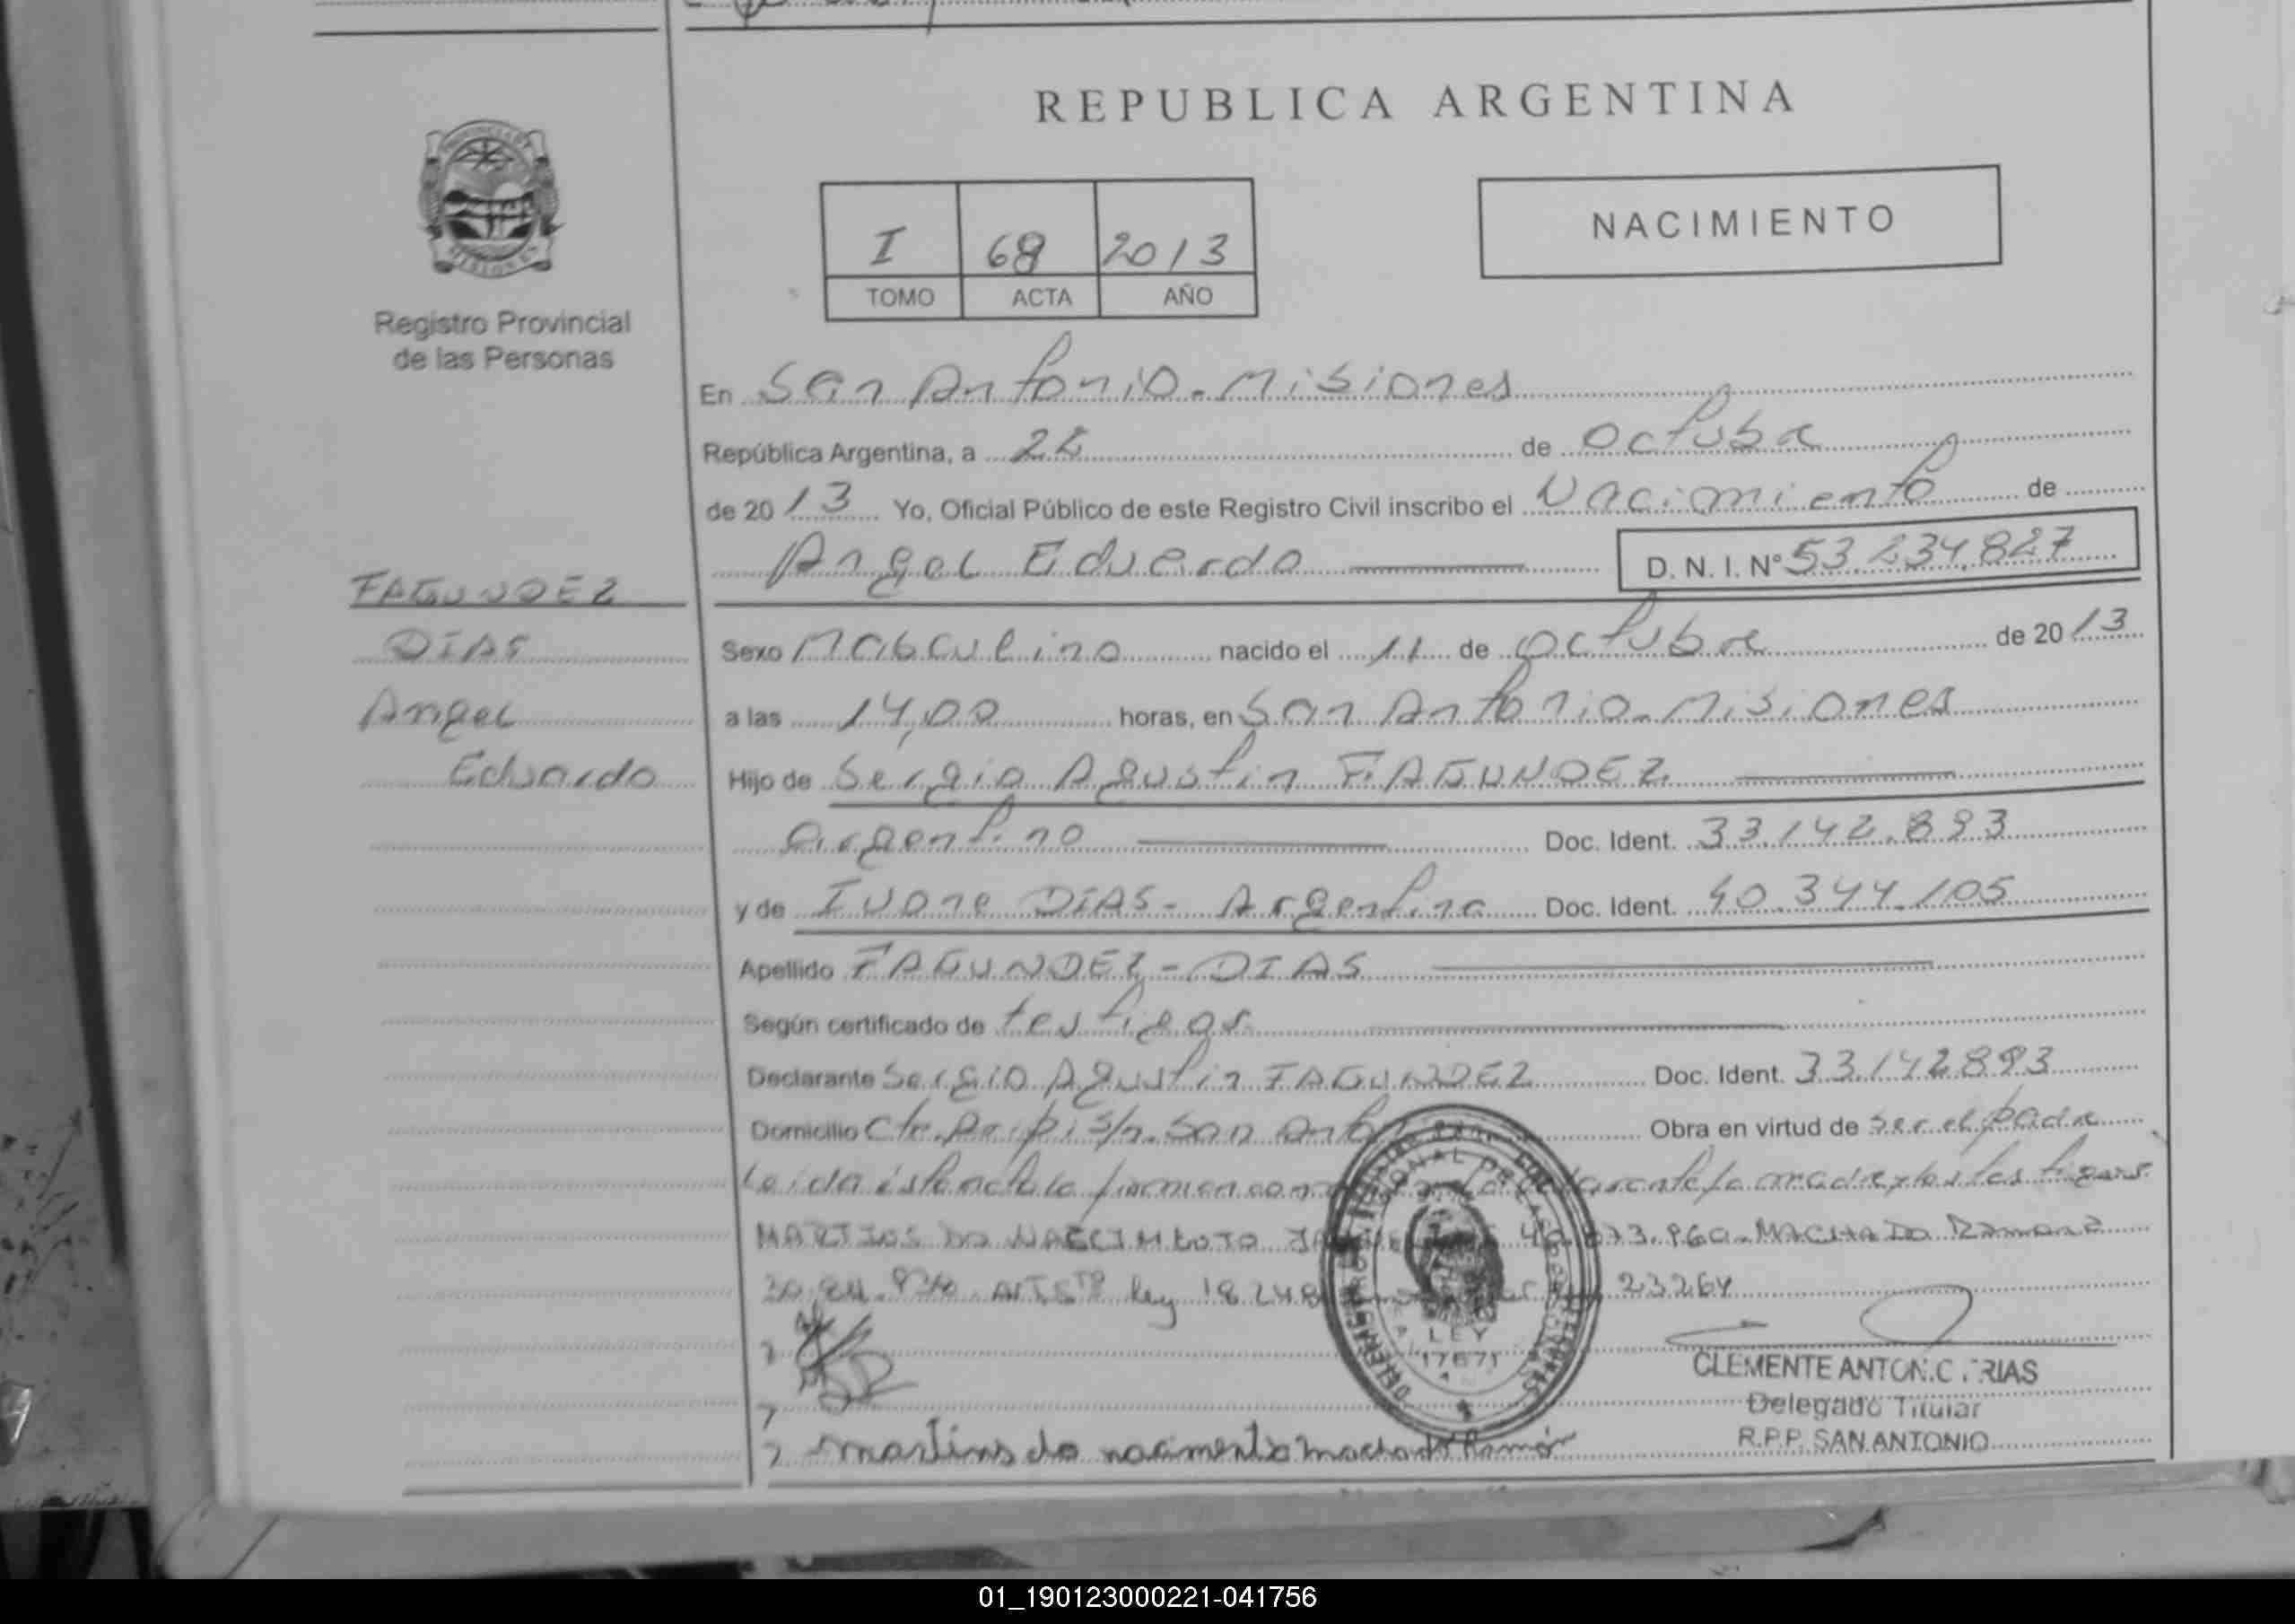 REPUBLICA ARGENTINA
I 68 2013
TOMO ACTA AÑO
NACIMIENTO
Registro Provincial
de las Personas
En San Antonio - Misiones
República Argentina, a 2 de octubre
de 2013 Yo, Oficial Público de este Registro Civil inscribo el Nacimiento de
Angel Eduardo D. N. I. Nº 53.234.827
FAGUNDEZ
DIAS
Angel
Eduardo
Sexo Masculino nacido el 11 de octubre de 2013
a las 14,00 horas, en San Antonio - Misiones
Hijo de Sergio Agustin FAGUNDEZ
argentino Doc. Ident. 33.142.893
y de Ivone DIAS - Argentina Doc. Ident. 40.344.105
Apellido FAGUNDEZ - DIAS
Según certificado de testigos
Declarante Sergio Agustin FAGUNDEZ Doc. Ident. 33.142893
Domicilio s/n. San Obra en virtud de ser el padre
Leida ésta acta la firman la madre y los testigos
MARTINS DO 960 - MACHADO Ramona
Ley 18248 23264
LEY
17671
CLEMENTE ANTONIO FRIAS
Delegado Titular
R.P.P. SAN ANTONIO
martins do nacimento machado Ramón
01_190123000221-041756